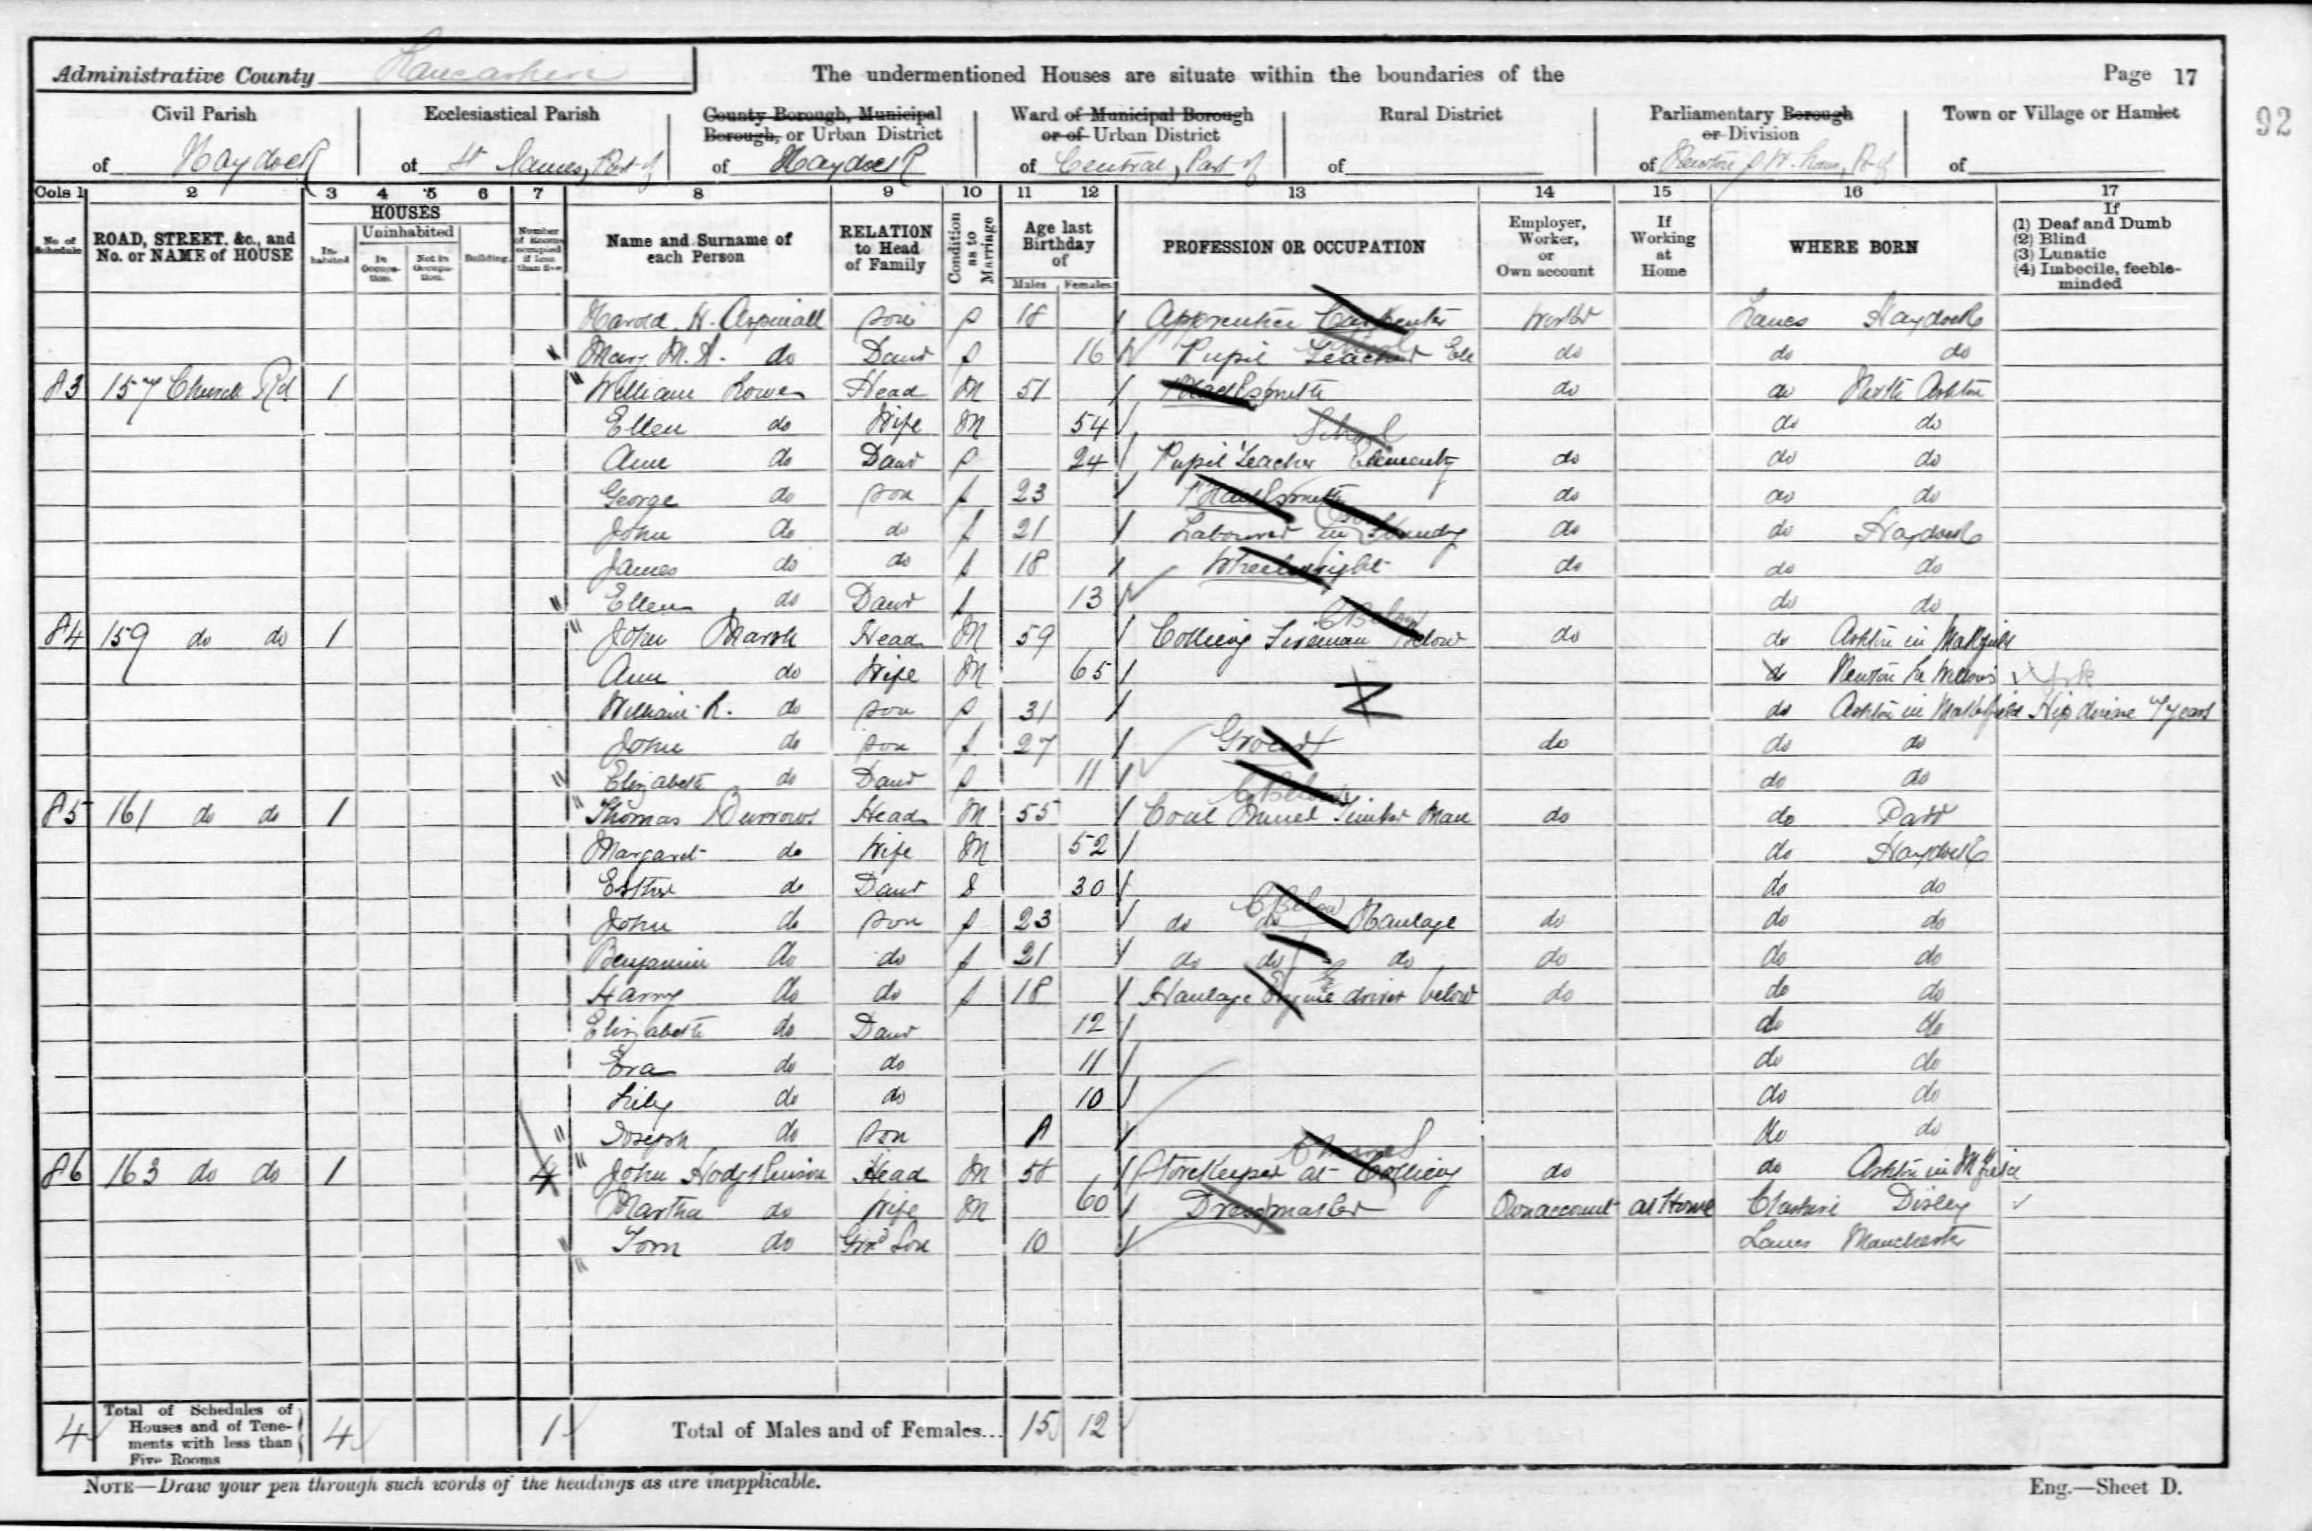 Administrative County Lancashire
The undermentioned Houses are situate within the boundaries of the
Page 17
92
Civil Parish of Haydock
Ecclesiastical Parish of St James, Part of
County Borough, Municipal Borough, or Urban District of Haydock
Ward of Municipal Borough or of Urban District of Central, Part of
Rural District of
Parliamentary Borough or Division of Newton S.W. Lancs, Pt of
Town or Village or Hamlet of
Cols 1 2 3 4 5 6 7 8 9 10 11 12 13 14 15 16 17
No of Schedule
ROAD, STREET, &c., and No. or NAME of HOUSE
HOUSES
Inhabited
Uninhabited
In Occupation.
Not in Occupation.
Building.
Number of Rooms occupied if less than five
Name and Surname of each Person
RELATION to Head of Family
Condition as to Marriage
Age last Birthday of
Males Females
PROFESSION OR OCCUPATION
Employer, Worker, or Own account
If Working at Home
WHERE BORN
If
(1) Deaf and Dumb
(2) Blind
(3) Lunatic
(4) Imbecile, feeble-minded
Harold H. Aspinall son S 18 Apprentice Carpenter Worker Lancs Haydock
Mary M. A. do Daur S 16 Pupil Teacher Ele do do do
83 157 Church Rd 1 William Lowe Head M 51 Blacksmith do do North Ashton
Ellen do Wife M 54 do do
School
Ann do Daur S 24 Pupil Teacher Elementy do do do
George do son S 23 Blacksmith do do do
John do do S 21 Labourer in Foundry do do Haydock
James do do S 18 Wheelwright do do do
Ellen do Daur S 13 do do
84 159 do do 1 John Marsh Head M 59 Colliery Fireman Below do do Ashton in Makfield
Ann do Wife M 65 do Newton le Willows
William R. do son S 31 do Ashton in Makerfield Hip disease 7 years
John do son S 27 Grocer do do do
Elizabeth do Daur S 11 do do
C Below
85 161 do do 1 Thomas Burrows Head M 55 Coal Mine Timber Man do do Parr
Margaret do Wife M 52 do Haydock
Esther do Daur S 30 do do
C Below
John do son S 23 do do Haulage do do do
Benjamin do do S 21 do do do do do do
Harry do do S 18 Haulage Engine driver below do do do
Elizabeth do Daur 12 do do
Eva do do 11 do do
Lily do do 10 do do
Joseph do son 8 do do
86 163 do do 1 4 John Hodgkinson Head M 58 Storekeeper at Colliery do do Ashton in Mfield
Martha do Wife M 60 Dressmaker Own account at Home Cheshire Disley
Tom do Grd Son 10 Lancs Manchester
4 Total of Schedules of Houses and of Tenements with less than Five Rooms 4 1 Total of Males and of Females... 15 12
NOTE—Draw your pen through such words of the headings as are inapplicable.
Eng.—Sheet D.